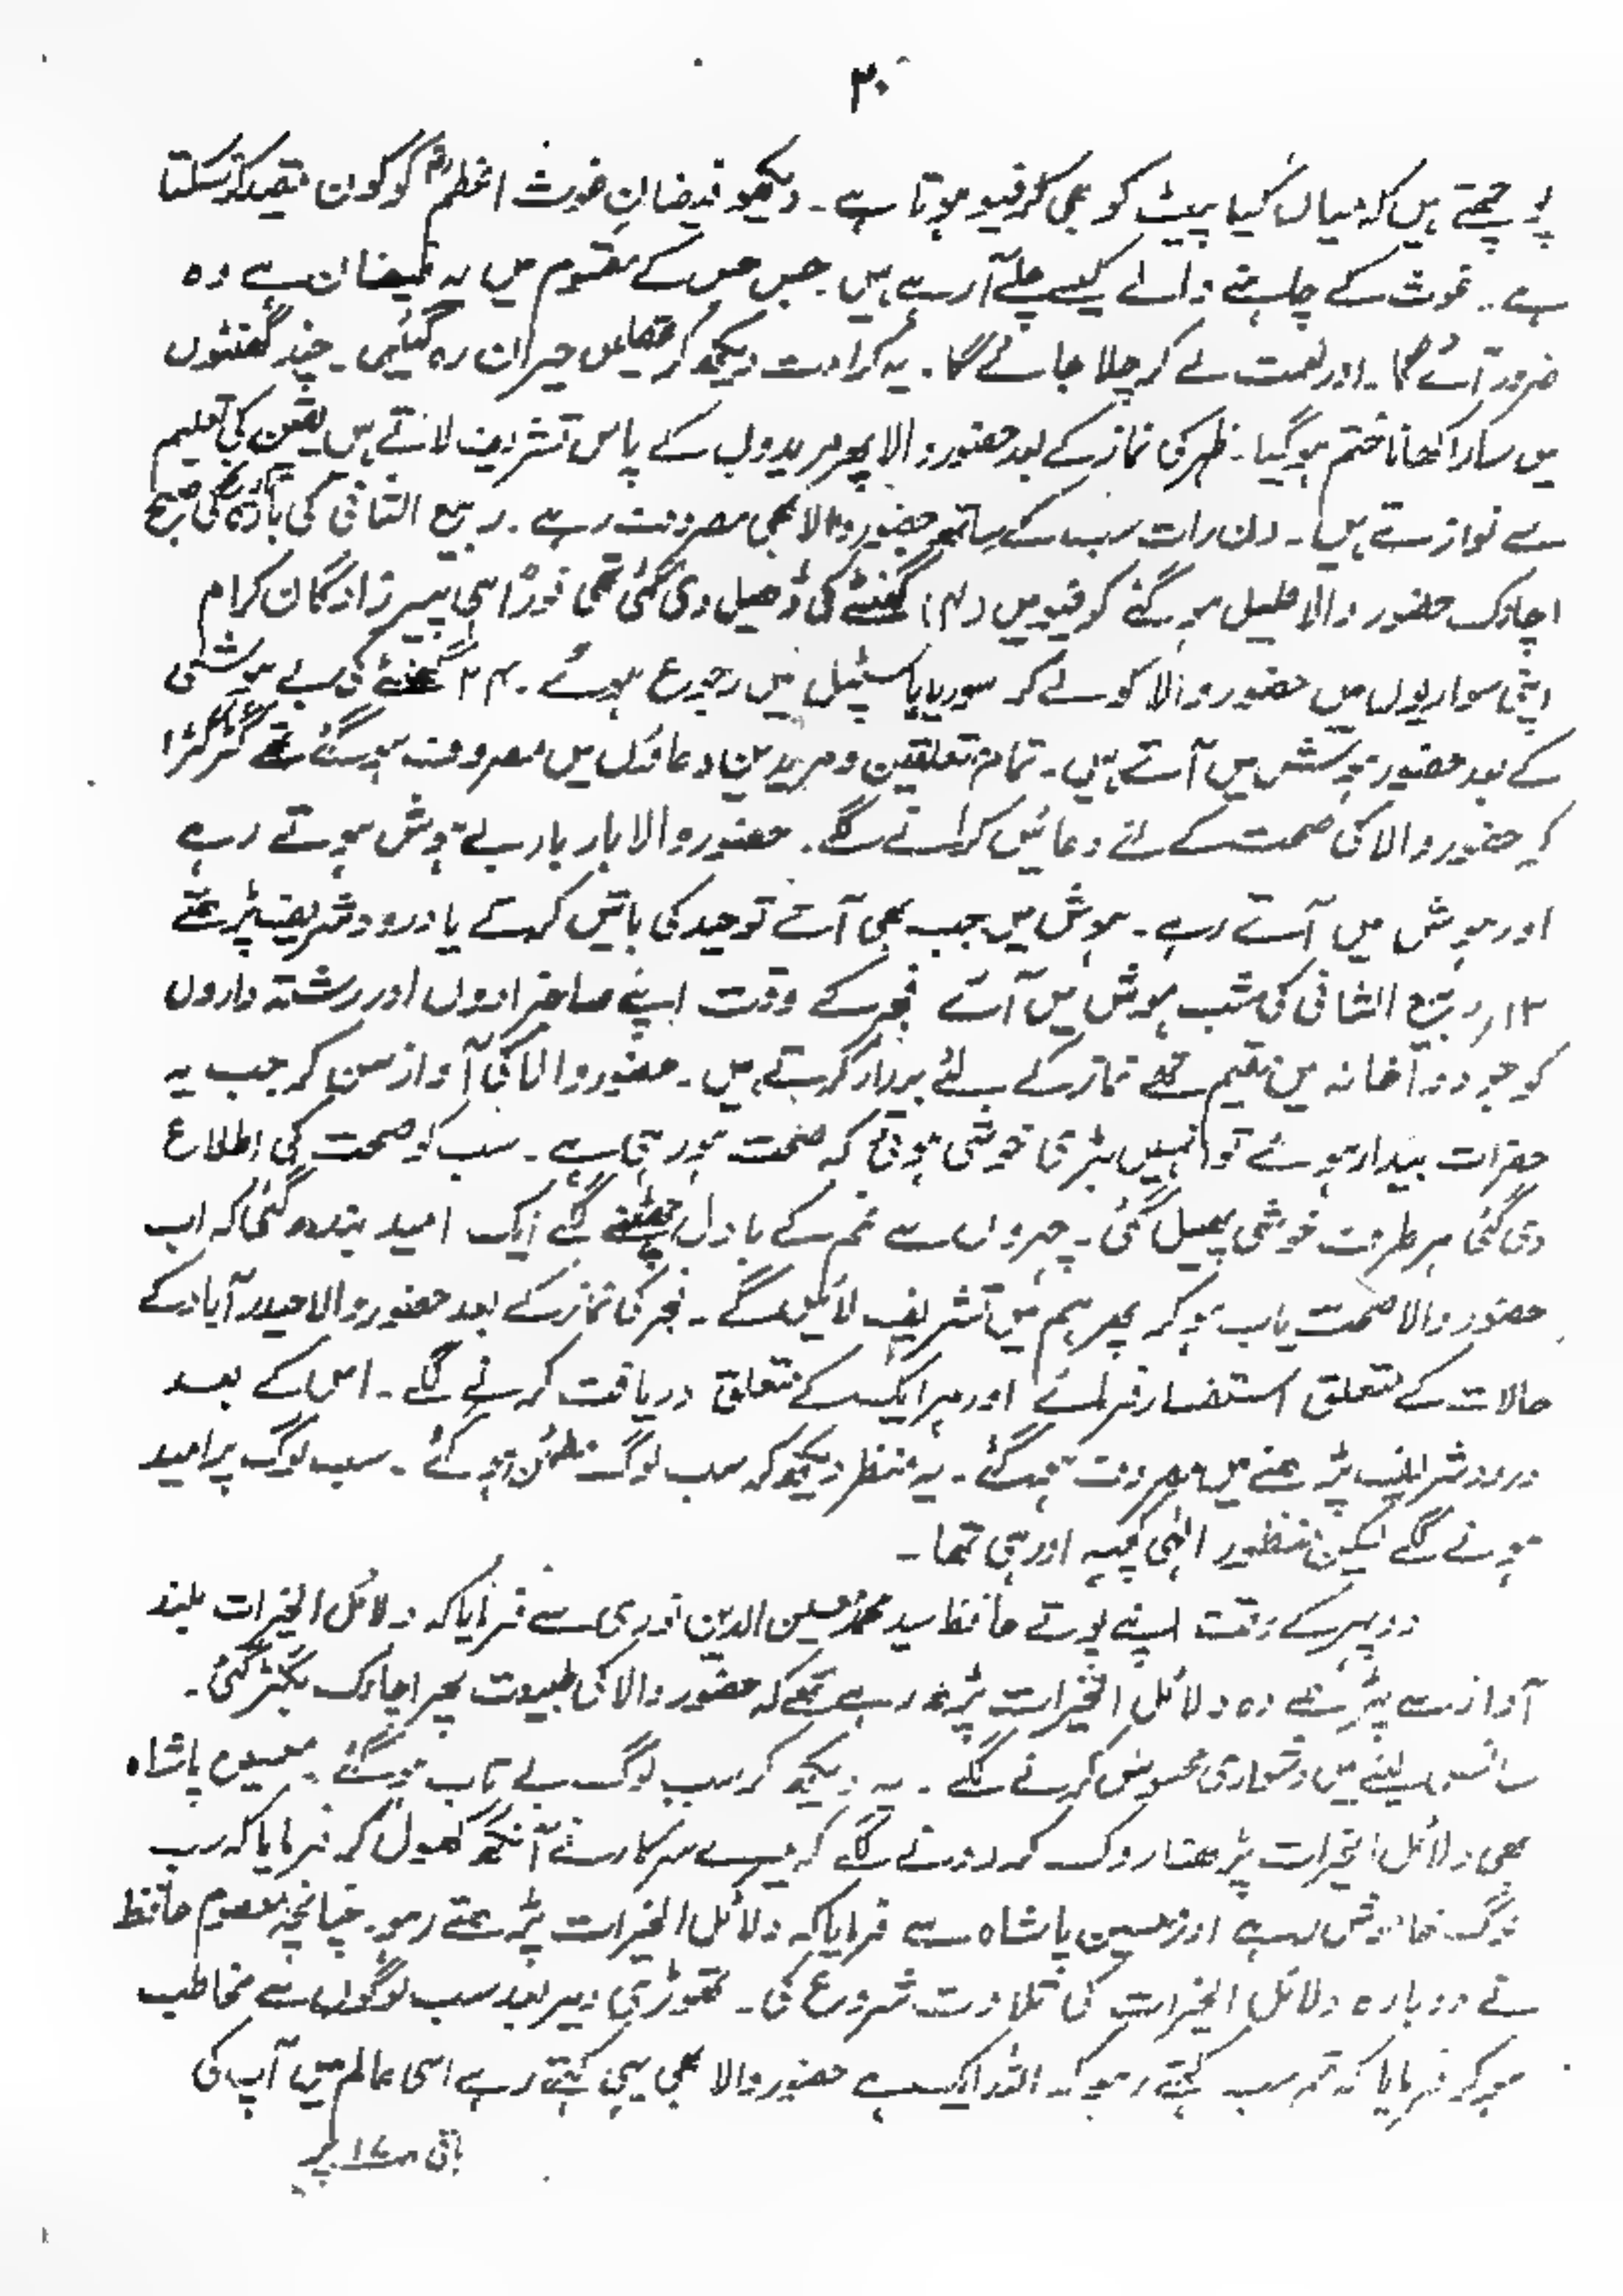 ۳۰
پوچھتے ہیں کہ میاں کیا پیٹ کو بھی کرفیو ہوتا ہے۔ دیکھو فیضانِ غوث اعظمؓ کو کون مقید کرسکتا
ہے۔ غوث کے چاہنے والے کیسے چلے آرہے ہیں۔ جس جس کے مقسوم میں یہ فیضان ہے وہ
ضرور آئے گا۔ اور نعمت لے کر چلا جائے گا۔ یہ کرامت دیکھ کر عقلیں حیران رہ گئیں۔ چند گھنٹوں
میں سارا کھانا ختم ہوگیا۔ ظہر کی نماز کے بعد حضور والا پھر مریدوں کے پاس تشریف لاتے ہیں یقین کی تعلیم
سے نوازتے ہیں۔ دن رات سب کے ساتھ حضور والا بھی مصروف رہے۔ ربیع الثانی کی بارہ تاریخ کی صبح
اچانک حضور والا علیل ہوگئے کرفیو میں (۴) گھنٹے کی ڈھیل دی گئی تھی فوراً ہی پیرزادگان کرام
اپنی سواریوں میں حضور والا کو لے کر سوریا ہاسپٹل میں رجوع ہوئے۔ ۲۴ گھنٹے کی بے ہوشی
کے بعد حضور ہوش میں آتے ہیں۔ تمام متعلقین و مریدین دعاؤں میں مصروف ہوگئے تھے گڑگڑا
کر حضور والا کی صحت کے لئے دعائیں کرانے لگے۔ حضور والا بار بار بے ہوش ہوتے رہے
اور ہوش میں آتے رہے۔ ہوش میں جب بھی آتے توحید کی باتیں کرتے یا درود شریف پڑھتے
۱۳؍ ربیع الثانی کی شب ہوش میں آئے فجر کے وقت اپنے صاحبزادوں اور رشتہ داروں
کو جو دواخانہ میں مقیم تھے نماز کے لئے بیدار کرتے ہیں۔ حضور والا کی آواز سن کر جب یہ
حضرات بیدار ہوئے تو انہیں بڑی خوشی ہوئی کہ صحت ہورہی ہے۔ سب کو صحت کی اطلاع
دی گئی ہر طرف خوشی پھیل گئی۔ چہروں سے غم کے بادل چھٹنے لگے ایک امید بندھ گئی کہ اب
حضور والا صحت یاب ہوکر پھر ہم میں تشریف لائیں گے۔ فجر کی نماز کے بعد حضور والا حیدرآباد کے
حالات کے متعلق استفسار فرمائے اور ہر ایک کے متعلق دریافت کرنے لگے۔ اس کے بعد
درود شریف پڑھنے میں مصروف ہوگئے۔ یہ منظر دیکھ کر سب لوگ مطمئن ہوگئے۔ سب لوگ پرامید
ہونے لگے لیکن منظور الٰہی کچھ اور ہی تھا۔
دوپہر کے وقت اپنے پوتے حافظ سید محمد معین الدین نوری سے فرمایا کہ دلائل الخیرات بلند
آواز سے پڑھے وہ دلائل الخیرات پڑھ رہے تھے کہ حضور والا کی طبیعت پھر اچانک بگڑ گئی۔
سانس لینے میں دشواری محسوس کرنے لگے۔ یہ دیکھ کر سب لوگ بے تاب ہوگئے۔ معین پاشاہ
بھی دلائل الخیرات پڑھنا روک کر رونے لگے کہ میرے سرکار نے آنکھ کھول کر فرمایا کہ سب
لوگ خاموش رہے اور معین پاشاہ سے فرمایا کہ دلائل الخیرات پڑھتے رہو۔ چنانچہ معصوم حافظ
نے دوبارہ دلائل الخیرات کی تلاوت شروع کی۔ تھوڑی دیر بعد سب لوگوں سے مخاطب
ہوکر فرمایا کہ تم سب کہتے رہو کہ اللہ ایک ہے حضور والا بھی یہی کہتے رہے اسی عالم میں آپ کی
باقی صـ۱۷ پر